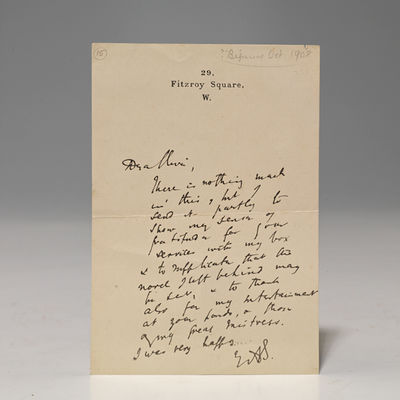 15
? Before Oct. 1908
29,
Fitzroy Square,
W.
Dear Clive,
There is nothing much
in this, but I
send it partly to
show my sense of
gratitude for your
services with my box
& to supplicate that the
novel I left behind may
be sent, & to thank
also for my entertainment
at your hands, & those
of my great mistress.
I was very happy.